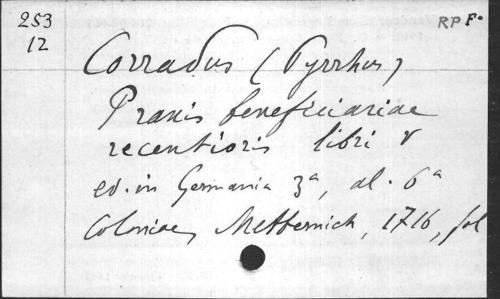 253
12
RP F°
Corradus (Pyrrhus)
Praxis beneficiariae
recentioris libri V
ed. in Germania 3a, al. 6a
Coloniae, Metternich, 1716, fol